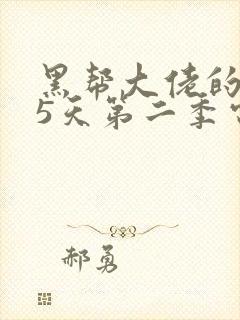 黑帮大佬的
5天第二季
郝勇